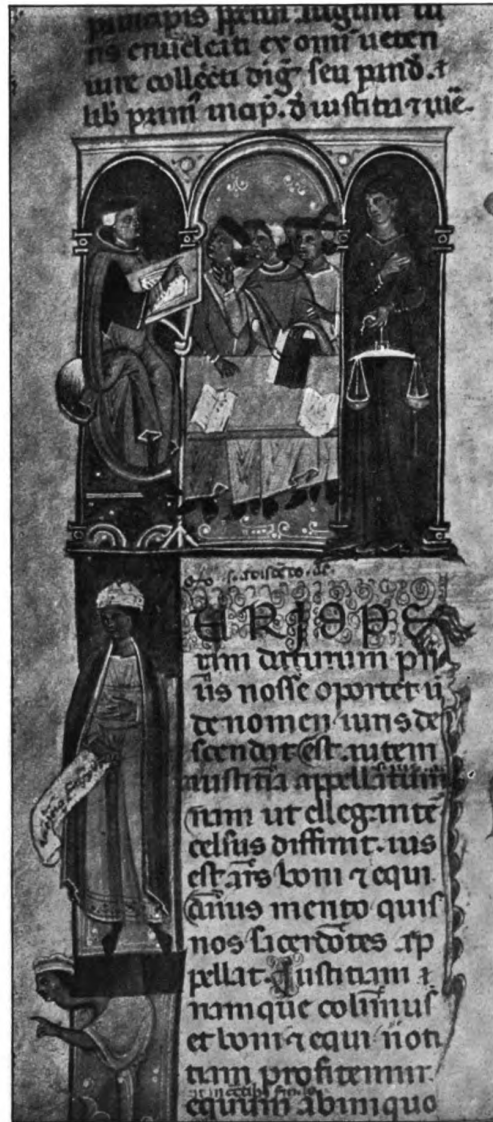 principis
ris enucleati ex omi ueteri
iure collecti dig seu pand. ⁊
lib prim incip. d iustitia ⁊ iure.
URI OPE
ram daturum pri
us nosse oportet u
de nomen iuris de
scendit Est autem
a iustitia appellatum
nam ut eleganter
celsus diffinit. ius
est ars boni ⁊ equi
Cuius merito quis
nos sacerdotes ap
pellat. Iustitiam
namque colimus
et boni ⁊ equi noti
tiam profitemur.
equum ab iniquo